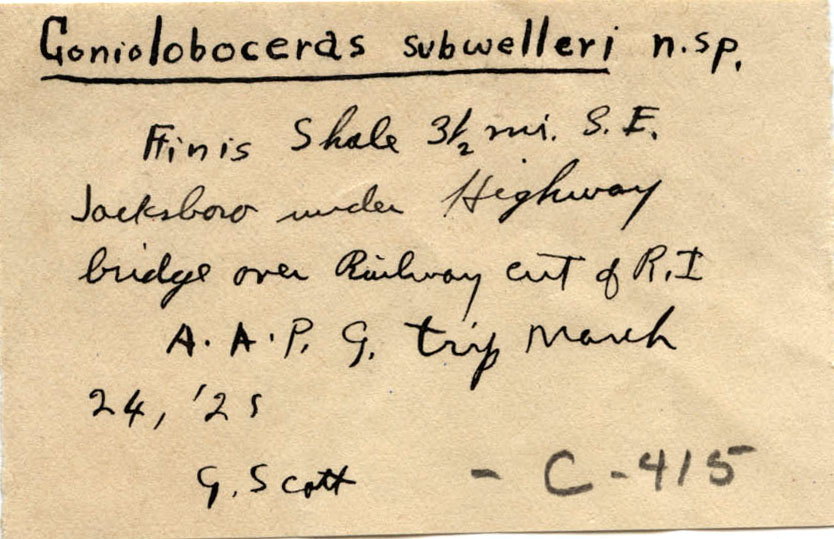 Gonioloboceras subwelleri n.sp.
Finis Shale 3½ mi. S.E.
Jacksboro under Highway
bridge over Railway cut of R.I
A.A.P.G. trip March
24, '25
G. Scott - C-415